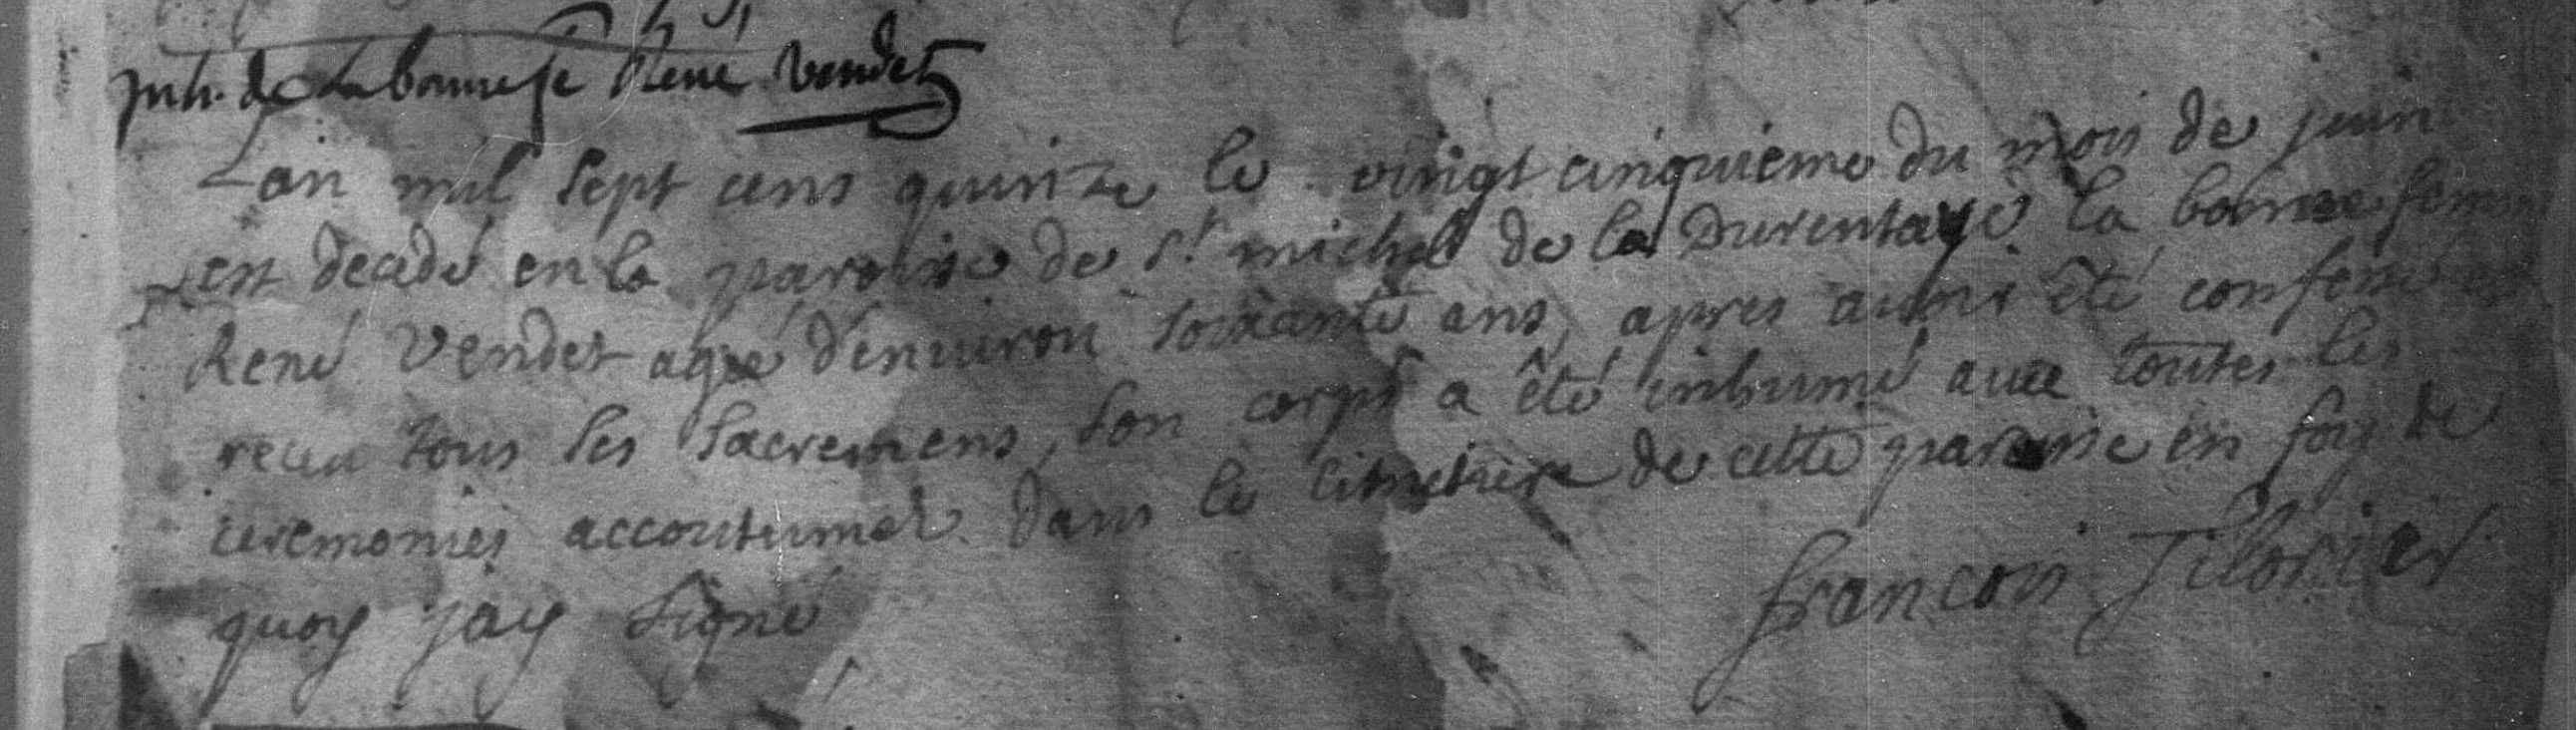 inh. de La bonne fe René Vendet
Lan mil sept cens quinze le vingt cinquieme du mois de juin
est decedé en la paroisse de St. michel de la Durentaye la bonne femme
René Vendet agée d'enuiron soixante ans, apres auoir été confessée et
receu tous ses sacremens, son corps a été inhumé auec toutes les
ceremonies accoutumés dans le cimetiere de cette paroisse en foy de
quoy jay signé
francois